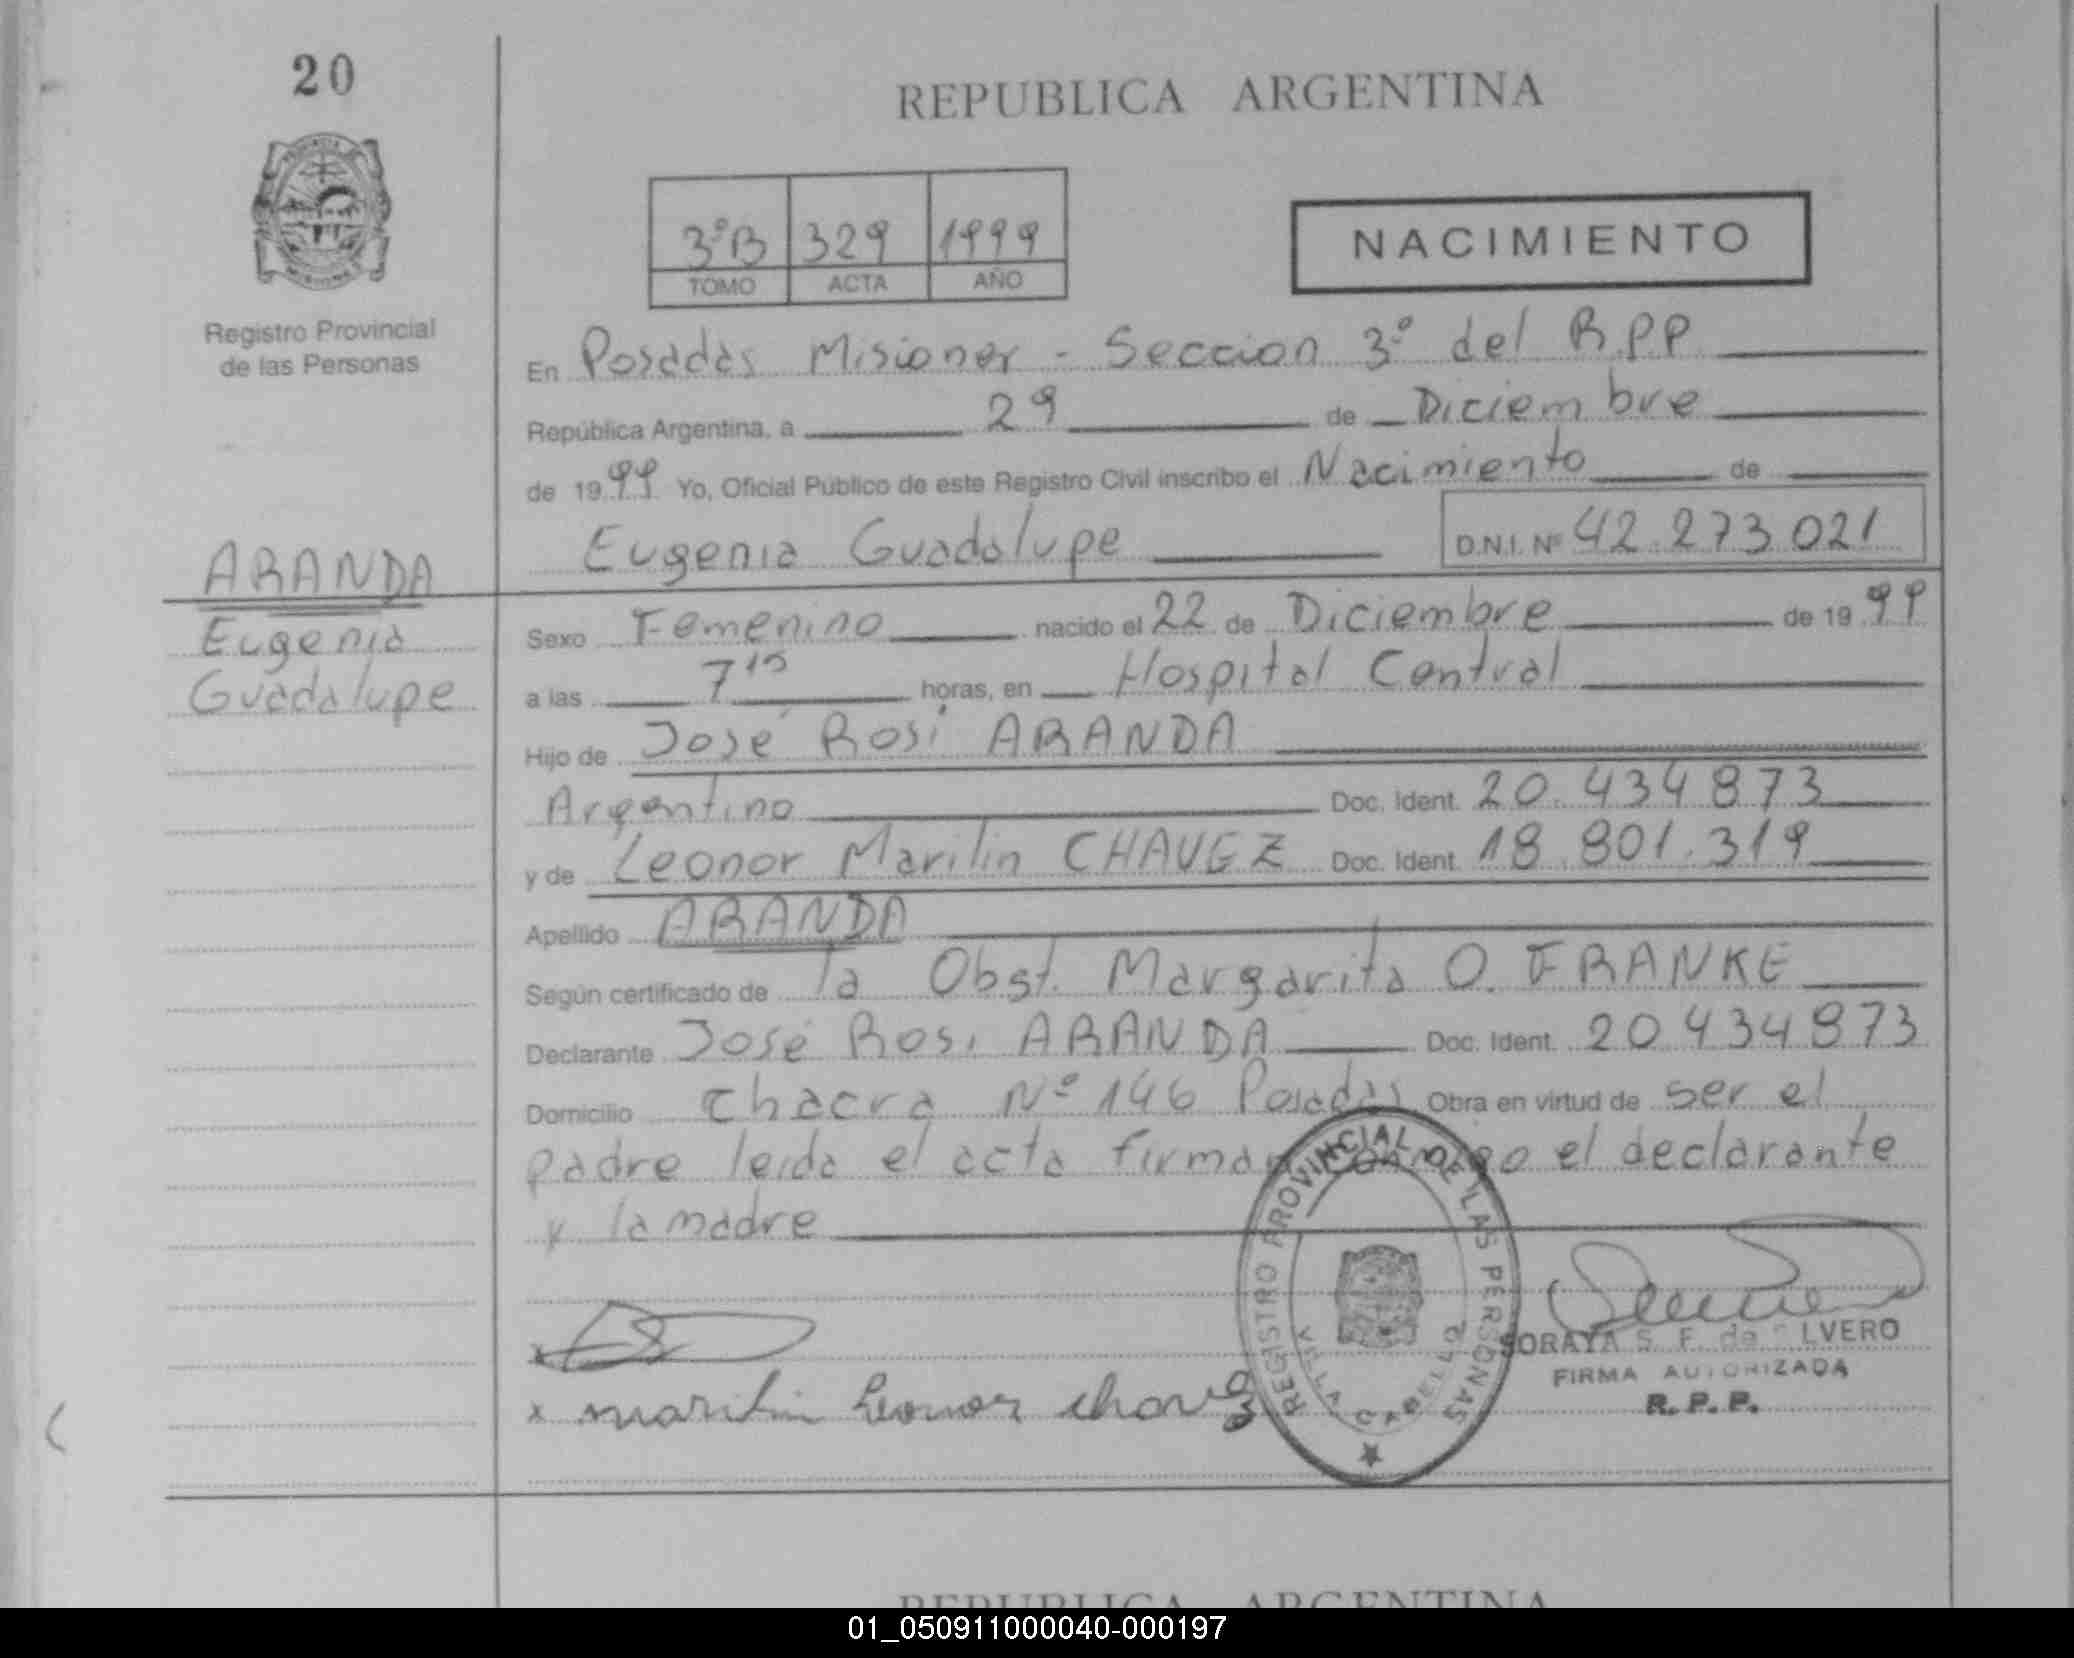 20
REPUBLICA ARGENTINA
3ºB 329 1999
TOMO ACTA AÑO
NACIMIENTO
Registro Provincial
de las Personas
En Posadas Misiones - Seccion 3º del R.P.P
República Argentina, a 29 de Diciembre
de 1999 Yo, Oficial Público de este Registro Civil inscribo el Nacimiento de
Eugenia Guadalupe D.N.I. Nº 42.273.021
ARANDA
Eugenia
Guadalupe
Sexo Femenino nacido el 22 de Diciembre de 1999
a las 7 15 horas, en Hospital Central
Hijo de José Rosi ARANDA
Argentino Doc. Ident. 20.434.873
y de Leonor Marilin CHAVEZ Doc. Ident. 18.801.319
Apellido ARANDA
Según certificado de la Obst. Margarita O. FRANKE
Declarante José Rosi ARANDA Doc. Ident. 20.434.873
Domicilio Chacra Nº 146 Posadas Obra en virtud de ser el
padre leida el acta firman conmigo el declarante
y la madre
REGISTRO PROVINCIAL DE LAS PERSONAS
VILLA CABELLO
SORAYA S. F. de
FIRMA AUTORIZADA
R.P.P.
x
x marilin Leonor chavez
REPUBLICA ARGENTINA
01_050911000040-000197